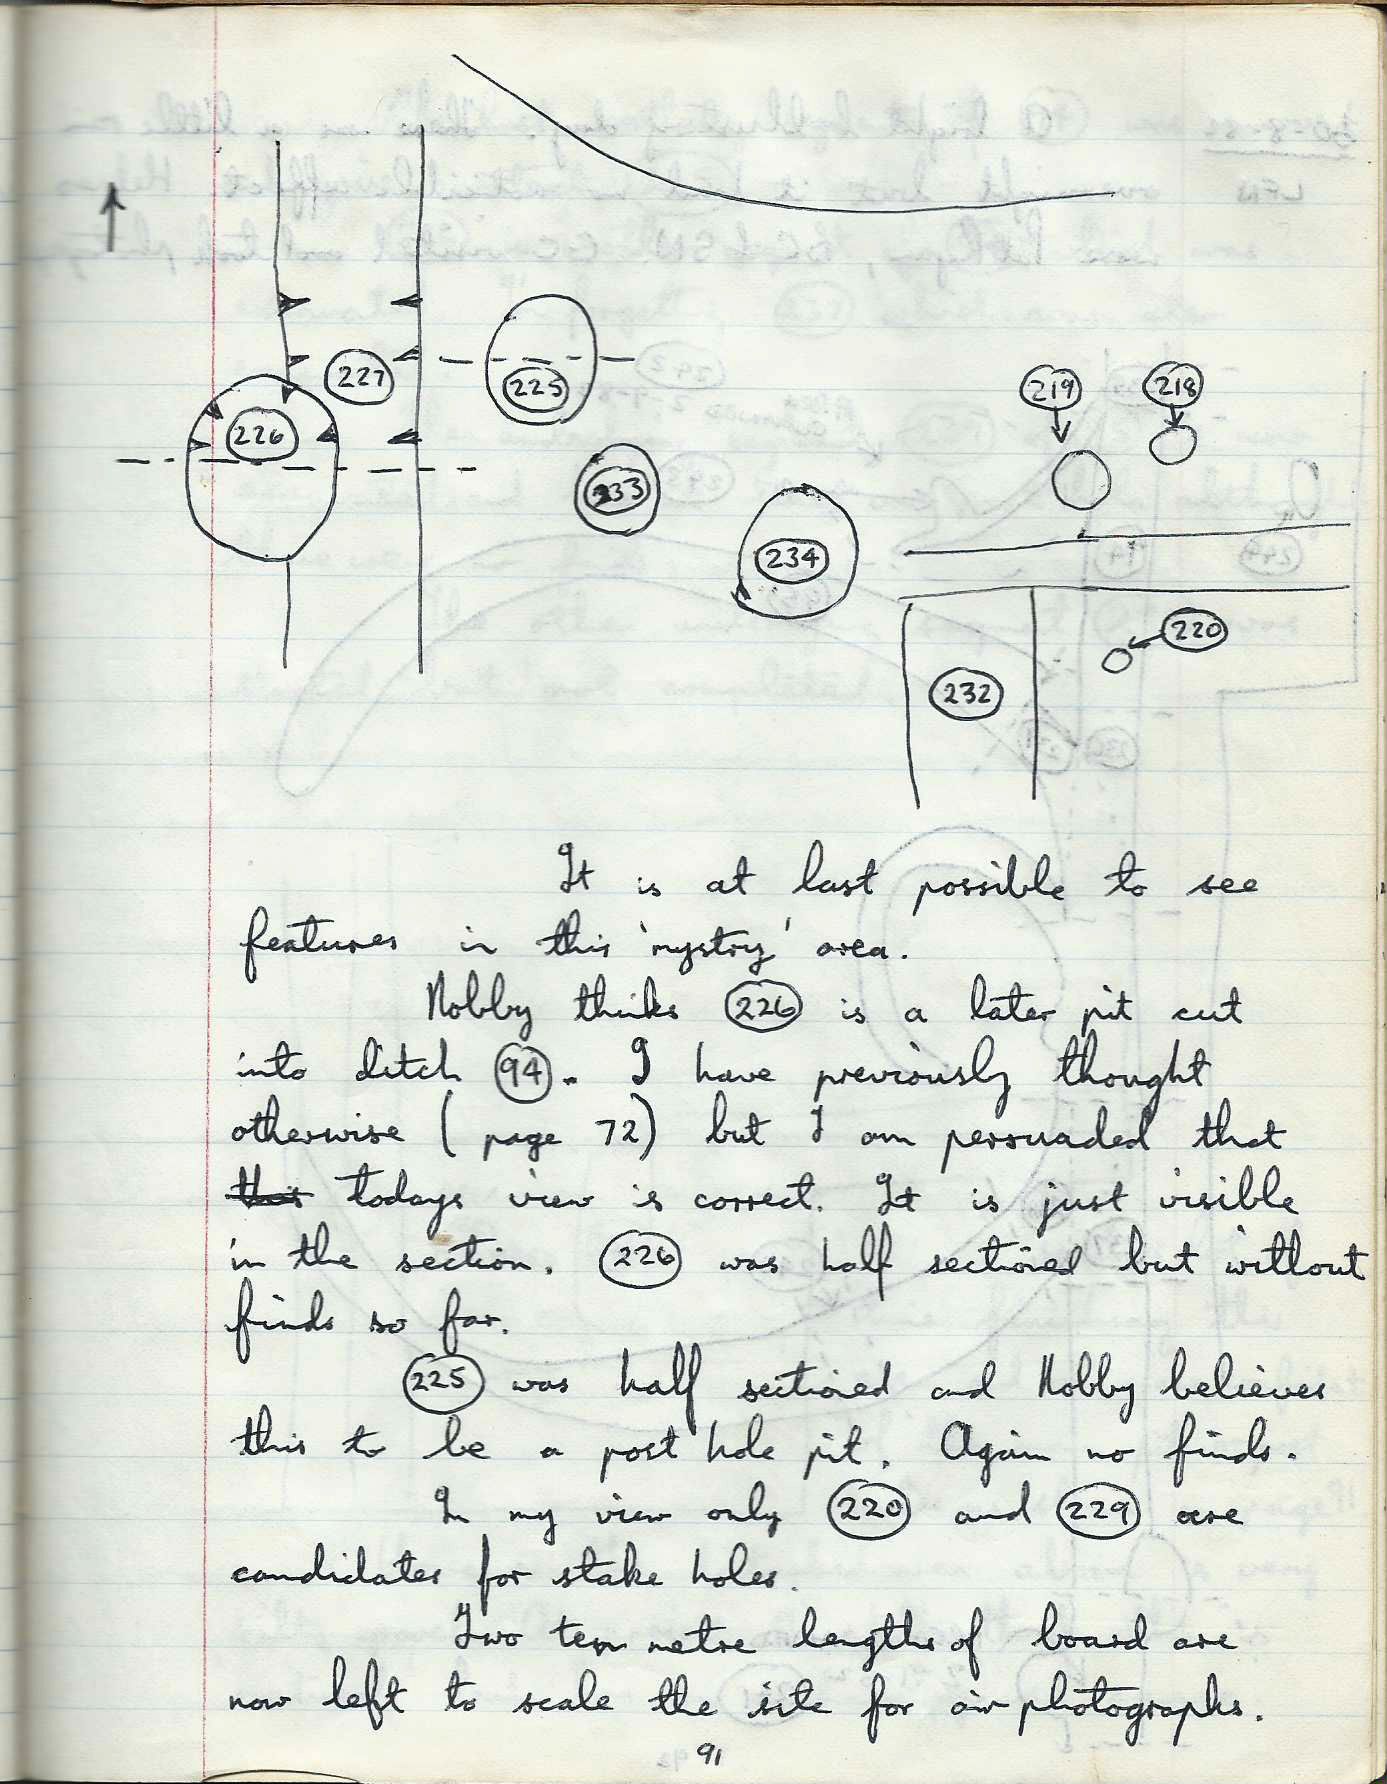 227
225
219
218
226
233
234
220
232
It is at last possible to see
features in this 'mystry' area.
Nobby thinks 226 is a later pit cut
into ditch 94. I have previously thought
otherwise (page 72) but I am persuaded that
this todays view is correct. It is just visible
in the section. 226 was half sectioned but without
finds so far.
225 was half sectioned and Nobby believes
this to be a post hole pit. Again no finds.
In my view only 220 and 229 are
candidates for stake holes.
Two ten metre lengths of board are
now left to scale the site for air photographs.
91